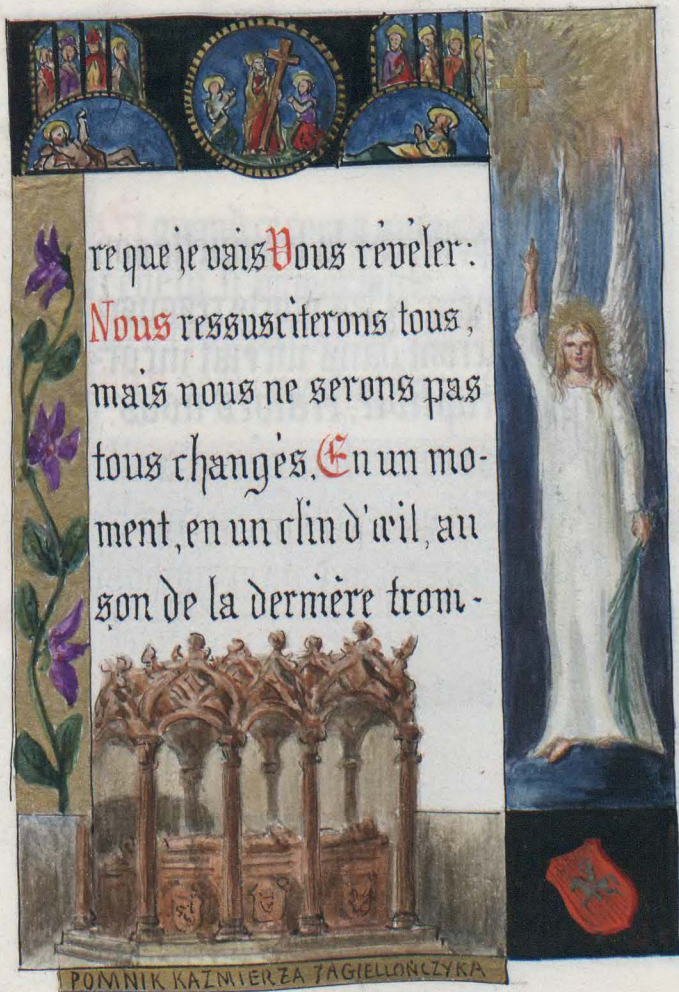 re que je vais Vous révéler:
Nous ressusciterons tous,
mais nous ne serons pas
tous changés. En un mo-
ment, en un clin d'œil, au
son de la dernière trom-
POMNIK KAZMIERZA JAGIELLOŃCZYKA